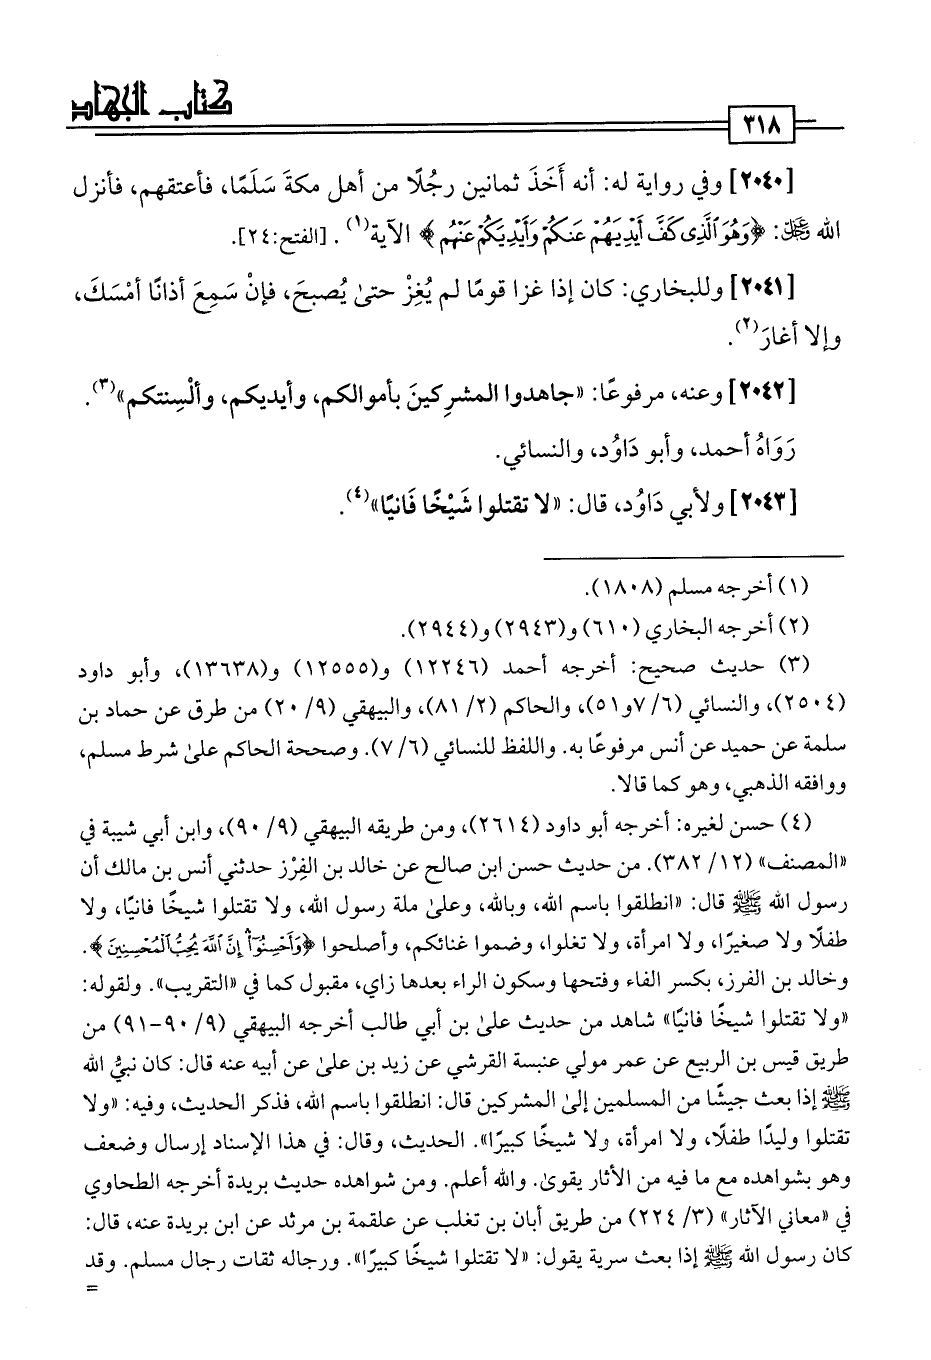 كتاب الجهاد
٣١٨
[٢٠٤٠] وفي رواية له: أنه أَخَذَ ثمانين رجُلًا من أهل مكةَ سَلَمًا، فأعتقهم، فأنزل
الله ﷿: ﴿وَهُوَ ٱلَّذِى كَفَّ أَيْدِيَهُمْ عَنكُمْ وَأَيْدِيَكُمْ عَنْهُم﴾ الآية(١). [الفتح:٢٤].
[٢٠٤١] وللبخاري: كان إذا غزا قومًا لم يُغِزْ حتىٰ يُصبحَ، فإنْ سَمِعَ أذانًا أمْسَكَ،
وإلا أغارَ(٢).
[٢٠٤٢] وعنه، مرفوعًا: «جاهدوا المشرِكينَ بأموالكم، وأيديكم، وألْسِنتكم»(٣).
رَوَاهُ أحمد، وأبو دَاوُد، والنسائي.
[٢٠٤٣] ولأبي دَاوُد، قال: «لا تقتلوا شَيْخًا فَانيًا»(٤).
(١) أخرجه مسلم (١٨٠٨).
(٢) أخرجه البخاري (٦١٠) و(٢٩٤٣) و(٢٩٤٤).
(٣) حديث صحيح: أخرجه أحمد (١٢٢٤٦) و(١٢٥٥٥) و(١٣٦٣٨)، وأبو داود
(٢٥٠٤)، والنسائي (٦/ ٧و٥١)، والحاكم (٢/ ٨١)، والبيهقي (٩/ ٢٠) من طرق عن حماد بن
سلمة عن حميد عن أنس مرفوعًا به. واللفظ للنسائي (٦/ ٧). وصححة الحاكم علىٰ شرط مسلم،
ووافقه الذهبي، وهو كما قالا.
(٤) حسن لغيره: أخرجه أبو داود (٢٦١٤)، ومن طريقه البيهقي (٩/ ٩٠)، وابن أبي شيبة في
«المصنف» (١٢/ ٣٨٢). من حديث حسن ابن صالح عن خالد بن الفِرْز حدثني أنس بن مالك أن
رسول الله ﷺ قال: «انطلقوا باسم الله، وبالله، وعلىٰ ملة رسول الله، ولا تقتلوا شيخًا فانيًا، ولا
طفلًا ولا صغيرًا، ولا امرأة، ولا تغلوا، وضموا غنائكم، وأصلحوا ﴿وَأَحْسِنُوٓا۟ إِنَّ ٱللَّهَ يُحِبُّ ٱلْمُحْسِنِينَ﴾.
وخالد بن الفرز، بكسر الفاء وفتحها وسكون الراء بعدها زاي، مقبول كما في «التقريب». ولقوله:
«ولا تقتلوا شيخًا فانيًا» شاهد من حديث علىٰ بن أبي طالب أخرجه البيهقي (٩/ ٩٠-٩١) من
طريق قيس بن الربيع عن عمر مولي عنبسة القرشي عن زيد بن علىٰ عن أبيه عنه قال: كان نبيُّ الله
ﷺ إذا بعث جيشًا من المسلمين إلىٰ المشركين قال: انطلقوا باسم الله، فذكر الحديث، وفيه: «ولا
تقتلوا وليدًا طفلًا، ولا امرأة، ولا شيخًا كبيرًا». الحديث، وقال: في هذا الإسناد إرسال وضعف
وهو بشواهده مع ما فيه من الأثار يقوىٰ. والله أعلم. ومن شواهده حديث بريدة أخرجه الطحاوي
في «معاني الآثار» (٣/ ٢٢٤) من طريق أبان بن تغلب عن علقمة بن مرثد عن ابن بريدة عنه، قال:
كان رسول الله ﷺ إذا بعث سرية يقول: «لا تقتلوا شيخًا كبيرًا». ورجاله ثقات رجال مسلم. وقد
=